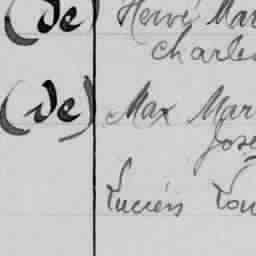 (de) Hervé Mar
Charles
(de) Max Mar
Jose
Lucien Lou